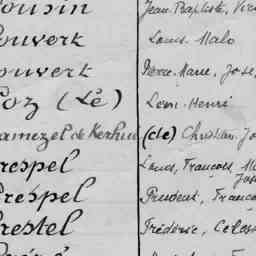 Cousin Jean Baptiste, Vic
Couvert Louis Malo
Couvert Pierre Marie, Jose
Coz (Le) Louis Henri
Kerhu (de) Christian Jo
Crespel Louis, François M
Jos
Crespel Prudent, Franço
Crestel Frédéric, Celes